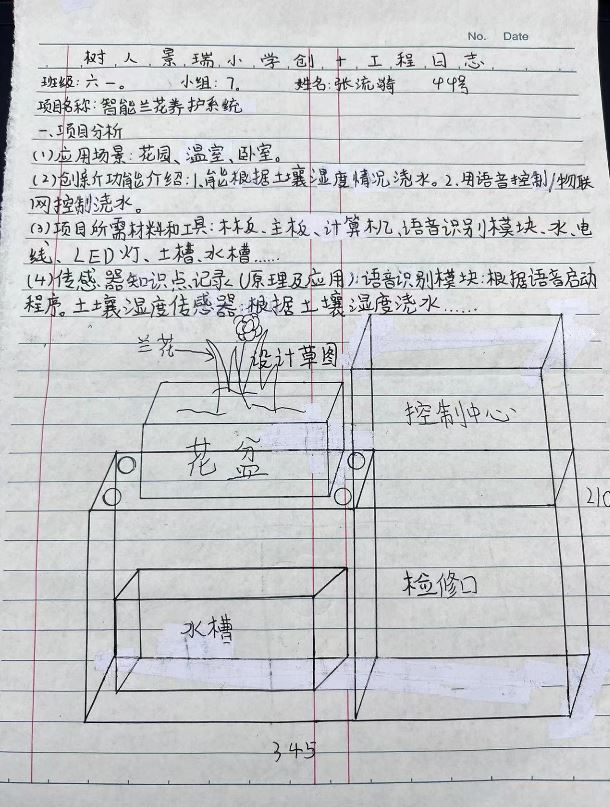 No. Date
树人景瑞小学创+工程日志
班级:六一。 小组:7。 姓名:张流骑 44号
项目名称:智能兰花养护系统
一、项目分析
(1)应用场景:花园、温室、卧室。
(2)创新介功能介绍:1.能根据土壤湿度情况浇水。2.用语音控制/物联
网控制浇水。
(3)项目所需材料和工具:木板、主板、计算机、语音识别模块、水、电
线、LED灯、土槽、水槽……
(4)传感器知识点记录(原理及应用):语音识别模块:根据语音启动
程序。土壤湿度传感器:根据土壤湿度浇水……
兰花
设计草图
控制中心
花盆
210
检修口
水槽
345